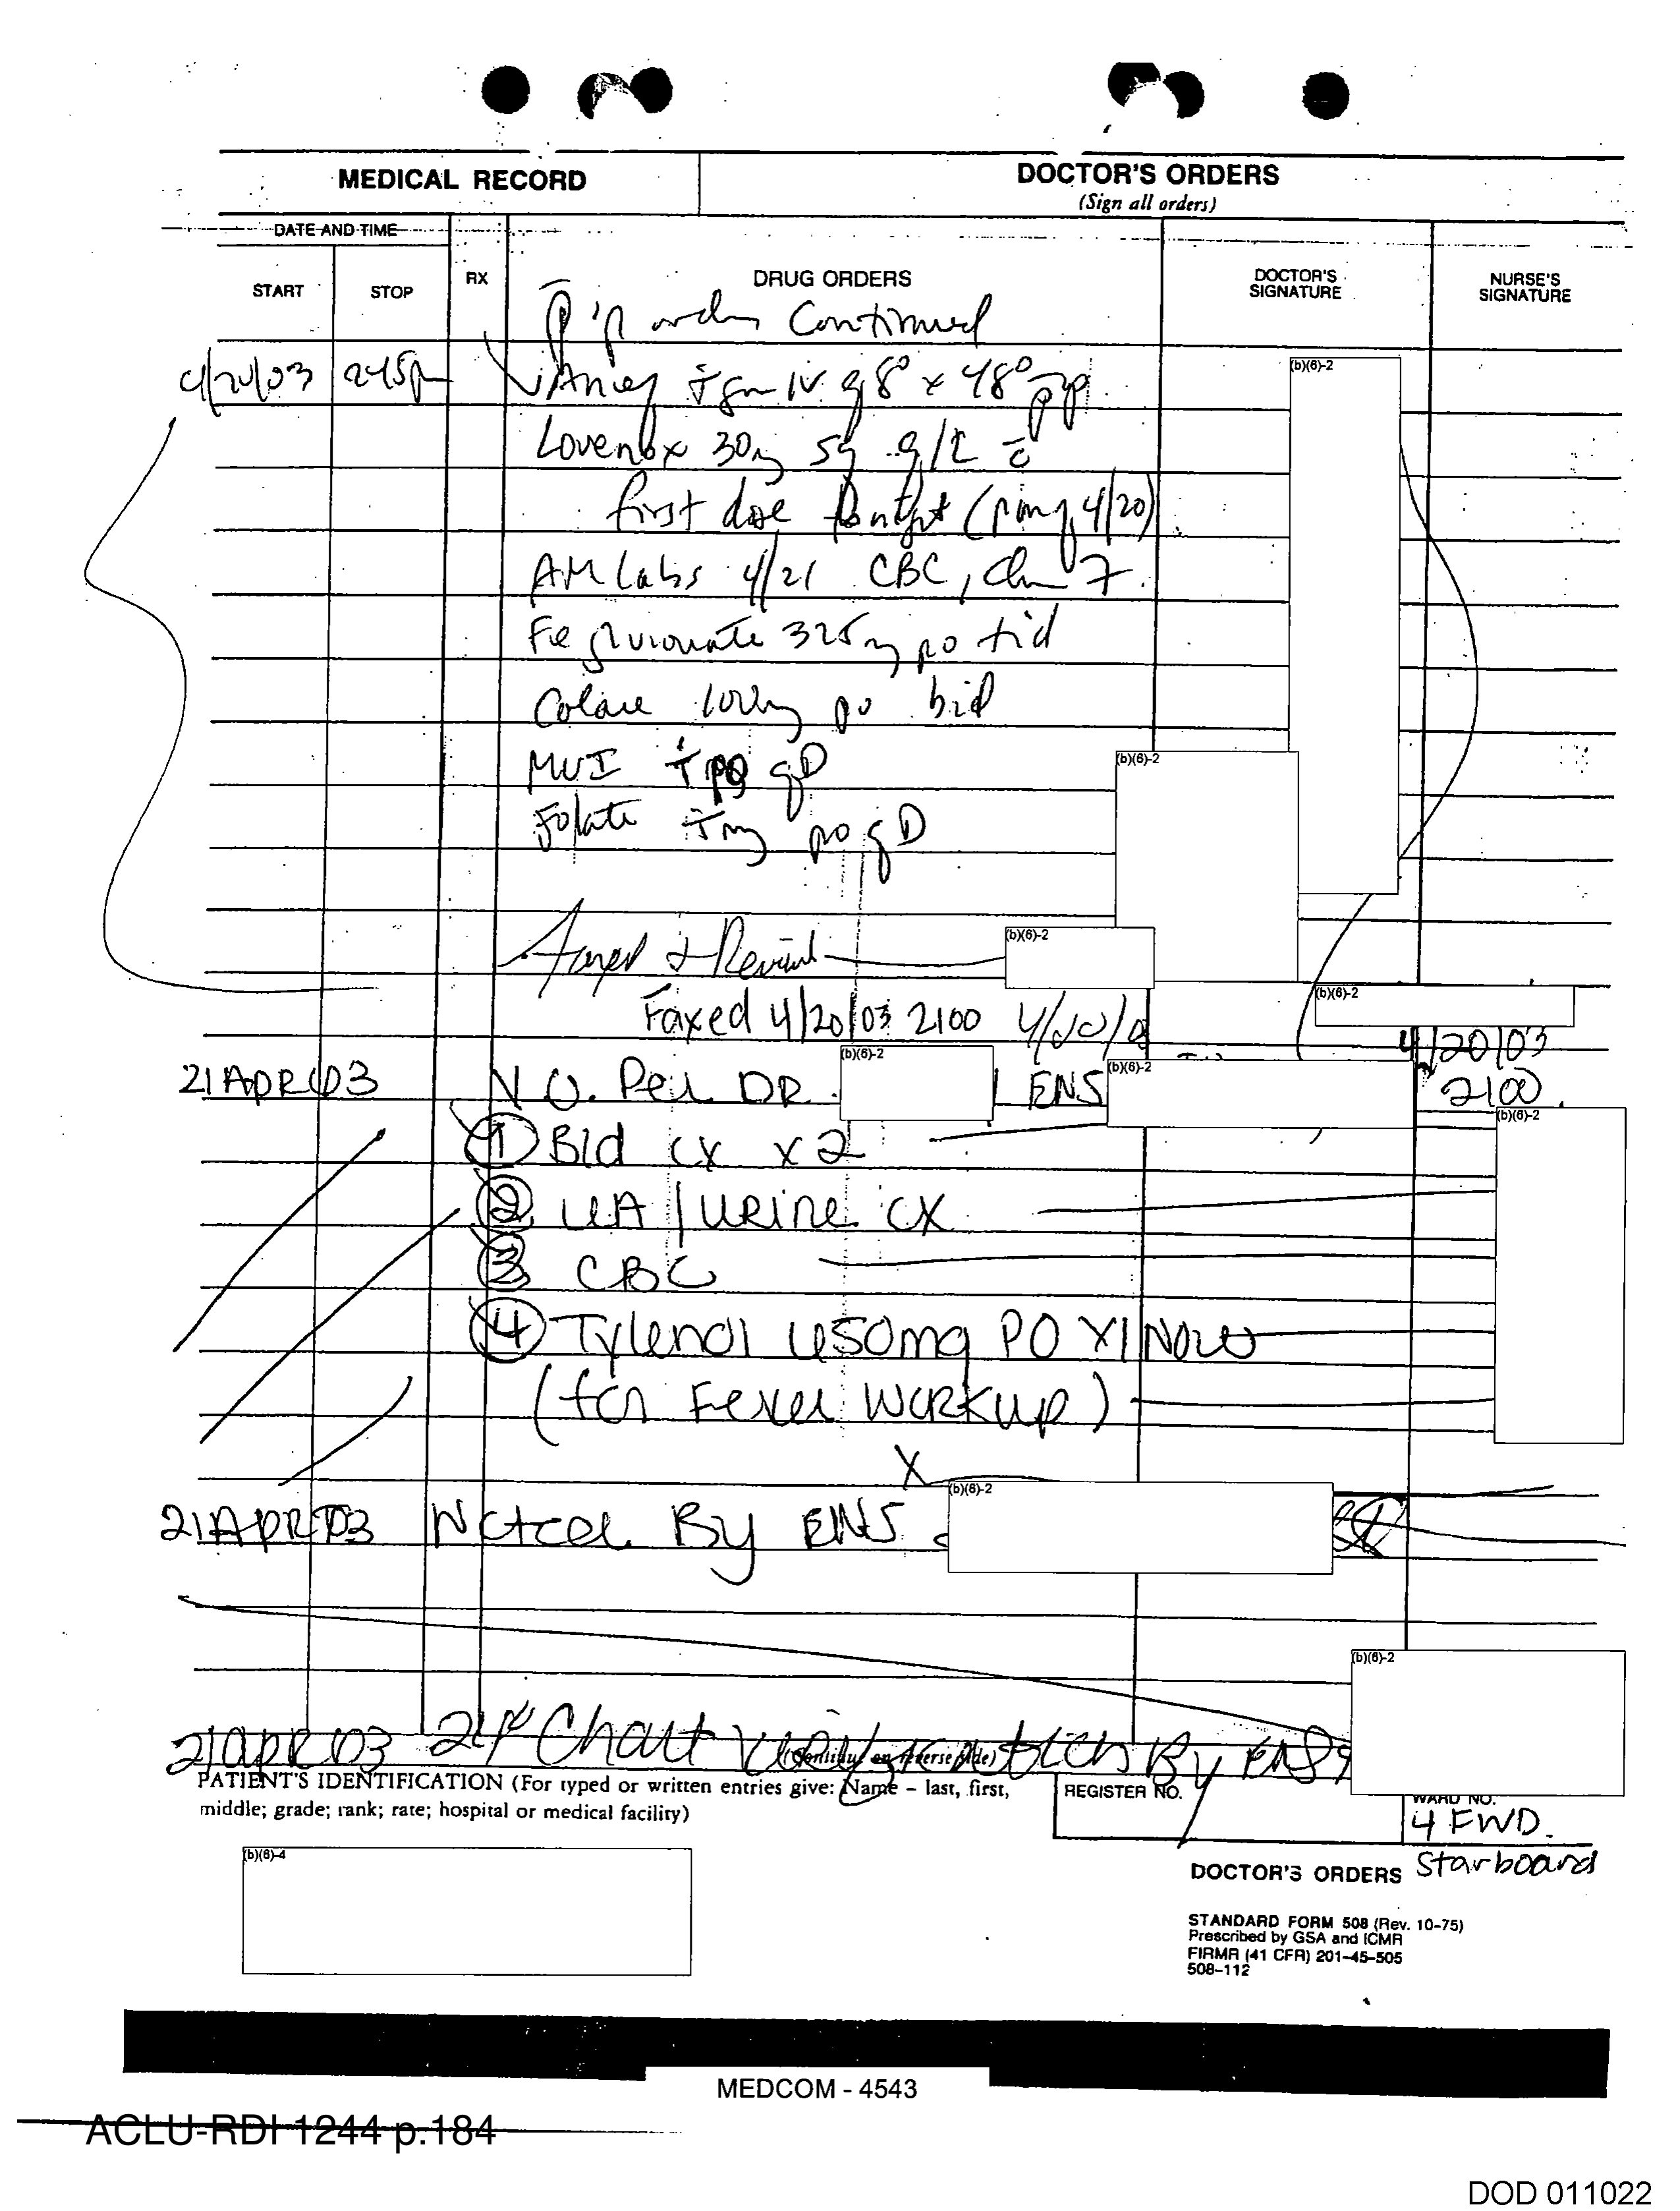 MEDICAL RECORD
DOCTOR'S ORDERS
(Sign all orders)
DATE AND TIME
START
STOP
RX
DRUG ORDERS
DOCTOR'S SIGNATURE
NURSE'S SIGNATURE
orders Continued
4/20/03 245p Ancef † gm IV q 8° x 48°
(b)(6)-2
Lovenox 30mg sq q12 c̄
first dose tonight (pm of 4/20)
AM labs 4/21 CBC, Chem 7.
Fe gluconate 325mg po tid
Colace 100mg po bid
MVI † po qD
(b)(6)-2
Folate † mg po qD
Faxed &
(b)(6)-2
(b)(6)-2
Faxed 4/20/03 2100
4/20/03
2100
21APR03 V.O. Per DR.
(b)(6)-2
ENS
(b)(6)-2
(b)(6)-2
① Bld cx x2
② UA/Urine CX
③ CBC
④ Tylenol 650mg PO X1 Now
(for Fever Workup)
X
21APR03 Noted By ENS
(b)(6)-2
(b)(6)-2
21APR03 24° Chart Verification By ENS
(Continue on reverse side)
PATIENT'S IDENTIFICATION (For typed or written entries give: Name – last, first,
middle; grade; rank; rate; hospital or medical facility)
REGISTER NO.
WARD NO.
4 FWD.
Starboard
(b)(6)-4
DOCTOR'S ORDERS
STANDARD FORM 508 (Rev. 10-75)
Prescribed by GSA and ICMR
FIRMR (41 CFR) 201-45-505
508-112
MEDCOM - 4543
ACLU-RDI 1244 p.184
DOD 011022